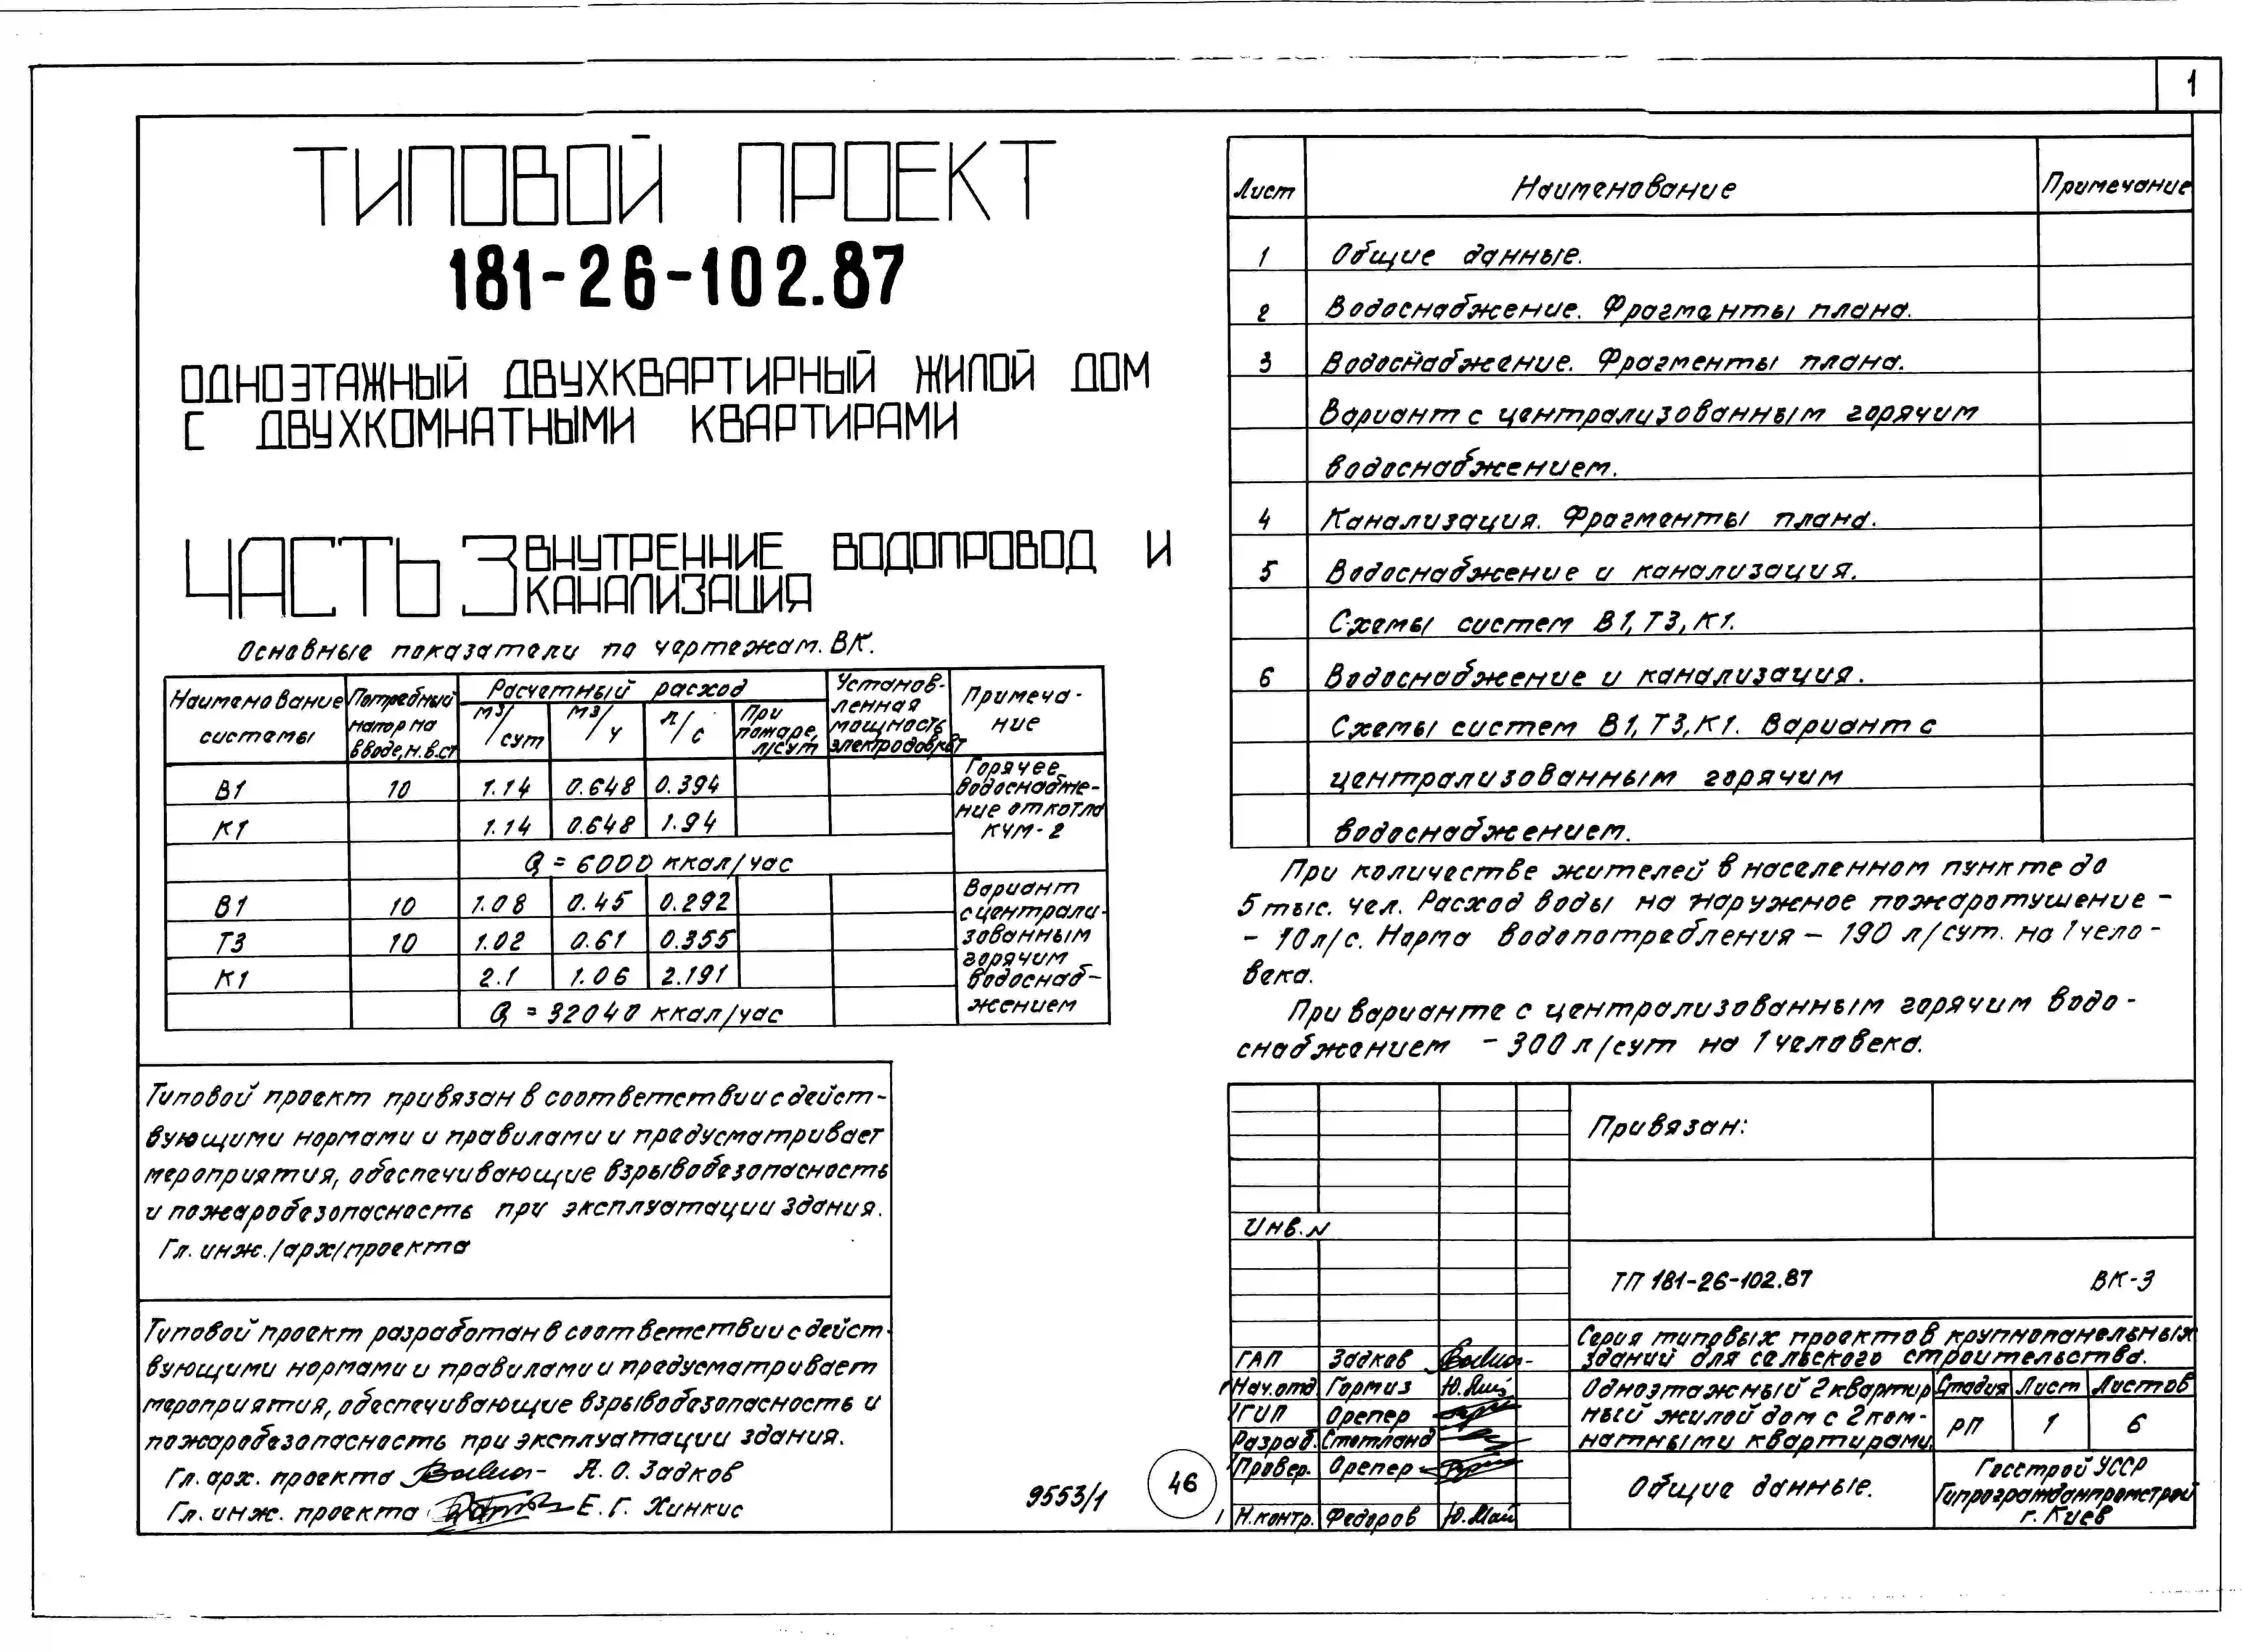 1
ТИПОВОЙ ПРОЕКТ
181-26-102.87
ОДНОЭТАЖНЫЙ ДВУХКВАРТИРНЫЙ ЖИЛОЙ ДОМ
С ДВУХКОМНАТНЫМИ КВАРТИРАМИ
ЧАСТЬ 3 ВНУТРЕННИЕ ВОДОПРОВОД И
КАНАЛИЗАЦИЯ
Основные показатели по чертежам. ВК.
Наименование системы | Потребный напор на вводе, м.в.ст | Расчетный расход | Установленная мощность электродов, кВт | Примечание
м3/сут | м3/ч | л/с | При пожаре, л/сут
В1 10 1.14 0.648 0.394 Горячее водоснабже-
ние от котла
К1 1.14 0.648 1.94 КЧМ-2
Q = 6000 ккал/час
В1 10 1.08 0.45 0.292 Вариант
с централи-
Т3 10 1.02 0.61 0.355 зованным
горячим
К1 2.1 1.06 2.191 водоснаб-
Q = 32040 ккал/час жением
Типовой проект привязан в соответствии с дейст-
вующими нормами и правилами и предусматривает
мероприятия, обеспечивающие взрывобезопасность
и пожаробезопасность при эксплуатации здания.
Гл. инж./арх/проекта
Типовой проект разработан в соответствии с дейст-
вующими нормами и правилами и предусматривает
мероприятия, обеспечивающие взрывобезопасность и
пожаробезопасность при эксплуатации здания.
Гл. арх. проекта Я. О. Задков
Гл. инж. проекта Е. Г. Хинкис
9553/1
46
Лист Наименование Примечание
1 Общие данные.
2 Водоснабжение. Фрагменты плана.
3 Водоснабжение. Фрагменты плана.
Вариант с централизованным горячим
водоснабжением.
4 Канализация. Фрагменты плана.
5 Водоснабжение и канализация.
Схемы систем В1, Т3, К1.
6 Водоснабжение и канализация.
Схемы систем В1, Т3, К1. Вариант с
централизованным горячим
водоснабжением.
При количестве жителей в населенном пункте до
5 тыс. чел. Расход воды на наружное пожаротушение -
- 10 л/с. Норма водопотребления - 190 л/сут. на 1 чело-
века.
При варианте с централизованным горячим водо-
снабжением - 300 л/сут на 1 человека.
Привязан:
Инв. №
ТП 181-26-102.87 ВК-3
Серия типовых проектов крупнопанельных
зданий для сельского строительства.
ГАП Задков
Нач.отд Гормиз
ГИП Орепер
Разраб. Стотланд
Провер. Орепер
Н.контр. Федоров
Одноэтажный 2квартир
ный жилой дом с 2ком-
натными квартирами
Стадия Лист Листов
РП 1 6
Общие данные.
Госстрой УССР
Гипрогражданпромстрой
г. Киев